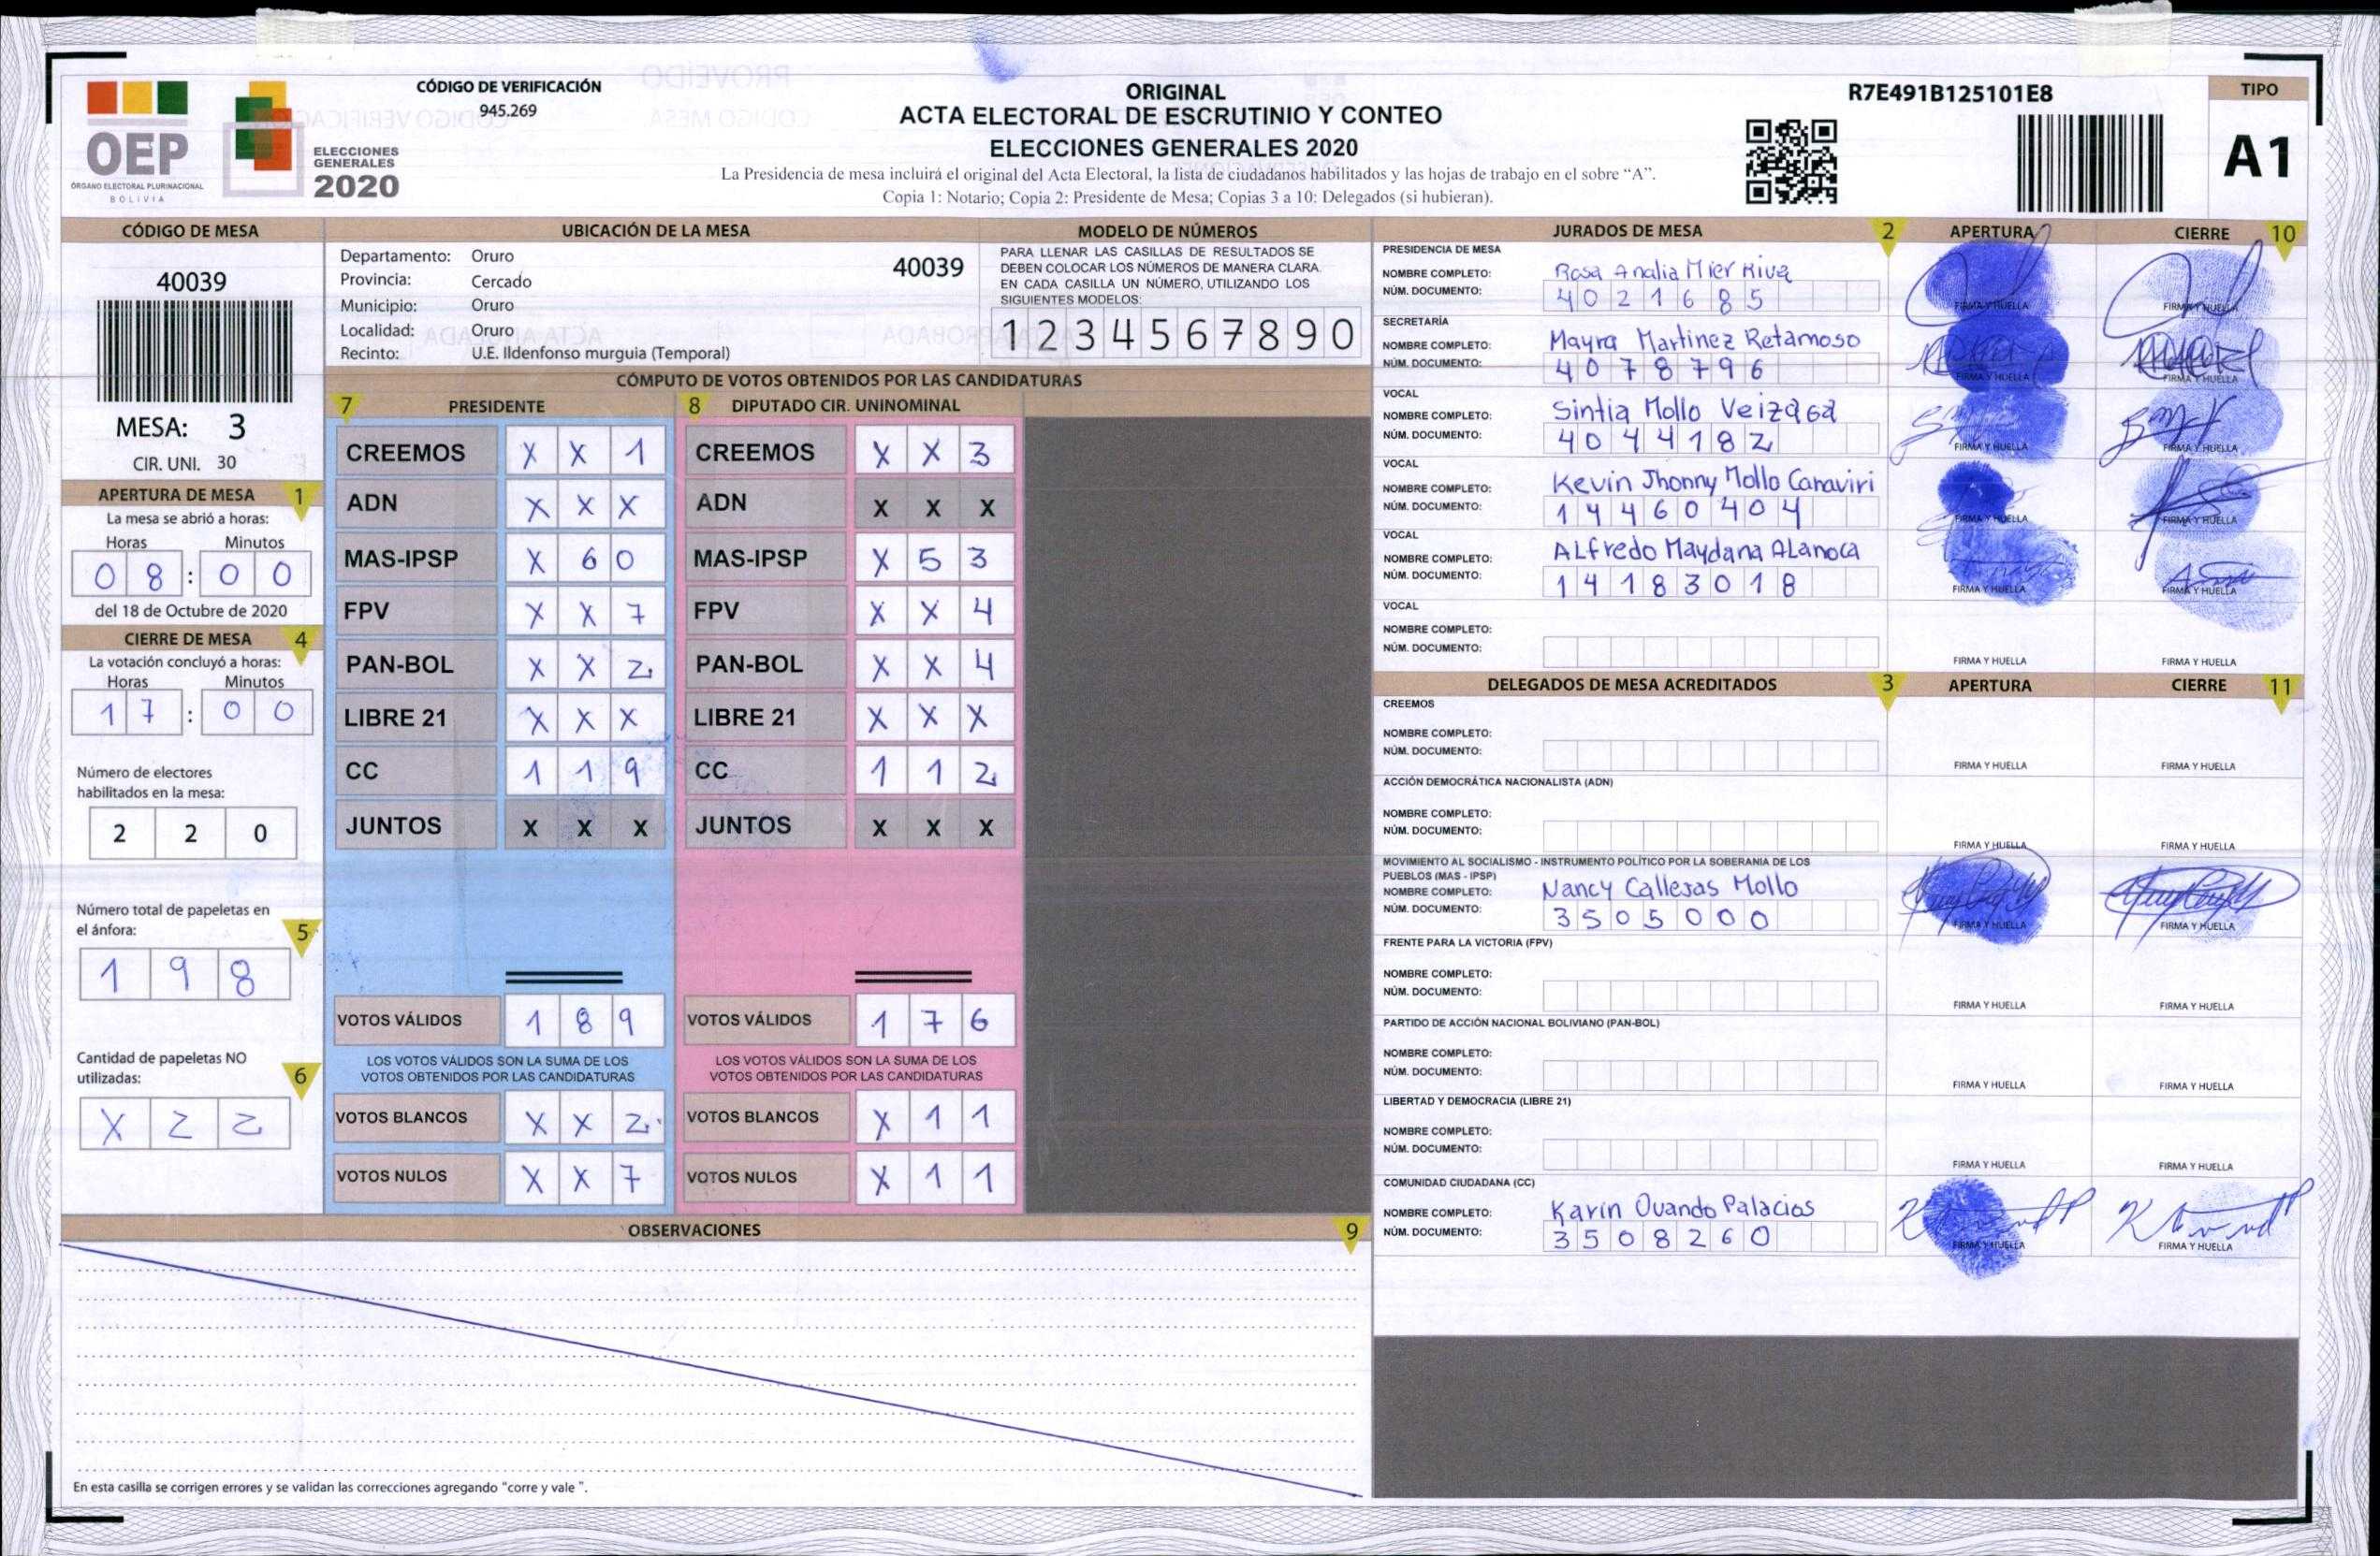 OEP
ÓRGANO ELECTORAL PLURINACIONAL
BOLIVIA
ELECCIONES
GENERALES
2020
CÓDIGO DE VERIFICACIÓN
945.269
ORIGINAL
ACTA ELECTORAL DE ESCRUTINIO Y CONTEO
ELECCIONES GENERALES 2020
La Presidencia de mesa incluirá el original del Acta Electoral, la lista de ciudadanos habilitados y las hojas de trabajo en el sobre “A”.
Copia 1: Notario; Copia 2: Presidente de Mesa; Copias 3 a 10: Delegados (si hubieran).
R7E491B125101E8
TIPO
A1
CÓDIGO DE MESA
40039
MESA: 3
CIR. UNI. 30
APERTURA DE MESA 1
La mesa se abrió a horas:
Horas Minutos
0 8 : 0 0
del 18 de Octubre de 2020
CIERRE DE MESA 4
La votación concluyó a horas:
Horas Minutos
1 7 : 0 0
Número de electores
habilitados en la mesa:
2 2 0
Número total de papeletas en
el ánfora: 5
1 9 8
Cantidad de papeletas NO
utilizadas: 6
X 2 2
UBICACIÓN DE LA MESA
Departamento: Oruro
Provincia: Cercado
Municipio: Oruro
Localidad: Oruro
Recinto: U.E. Ildenfonso murguia (Temporal)
40039
MODELO DE NÚMEROS
PARA LLENAR LAS CASILLAS DE RESULTADOS SE
DEBEN COLOCAR LOS NÚMEROS DE MANERA CLARA.
EN CADA CASILLA UN NÚMERO, UTILIZANDO LOS
SIGUIENTES MODELOS:
1 2 3 4 5 6 7 8 9 0
CÓMPUTO DE VOTOS OBTENIDOS POR LAS CANDIDATURAS
7 PRESIDENTE 8 DIPUTADO CIR. UNINOMINAL
CREEMOS X X 1 CREEMOS X X 3
ADN X X X ADN X X X
MAS-IPSP X 6 0 MAS-IPSP X 5 3
FPV X X 7 FPV X X 4
PAN-BOL X X 2 PAN-BOL X X 4
LIBRE 21 X X X LIBRE 21 X X X
CC 1 1 9 CC 1 1 2
JUNTOS X X X JUNTOS X X X
VOTOS VÁLIDOS 1 8 9 VOTOS VÁLIDOS 1 7 6
LOS VOTOS VÁLIDOS SON LA SUMA DE LOS LOS VOTOS VÁLIDOS SON LA SUMA DE LOS
VOTOS OBTENIDOS POR LAS CANDIDATURAS VOTOS OBTENIDOS POR LAS CANDIDATURAS
VOTOS BLANCOS X X 2 VOTOS BLANCOS X 1 1
VOTOS NULOS X X 7 VOTOS NULOS X 1 1
OBSERVACIONES 9
En esta casilla se corrigen errores y se validan las correcciones agregando “corre y vale ”.
JURADOS DE MESA 2 APERTURA CIERRE 10
PRESIDENCIA DE MESA
NOMBRE COMPLETO: Rosa Analia Mier Riva
NÚM. DOCUMENTO: 4 0 2 1 6 8 5
FIRMA Y HUELLA FIRMA Y HUELLA
SECRETARÍA
NOMBRE COMPLETO: Mayra Martinez Retamoso
NÚM. DOCUMENTO: 4 0 7 8 7 9 6
FIRMA Y HUELLA FIRMA Y HUELLA
VOCAL
NOMBRE COMPLETO: Sintia Mollo Veizaga
NÚM. DOCUMENTO: 4 0 4 4 1 8 2
FIRMA Y HUELLA FIRMA Y HUELLA
VOCAL
NOMBRE COMPLETO: Kevin Jhonny Mollo Canaviri
NÚM. DOCUMENTO: 1 4 4 6 0 4 0 4
FIRMA Y HUELLA FIRMA Y HUELLA
VOCAL
NOMBRE COMPLETO: ALfredo Maydana ALanoca
NÚM. DOCUMENTO: 1 4 1 8 3 0 1 8
FIRMA Y HUELLA FIRMA Y HUELLA
VOCAL
NOMBRE COMPLETO:
NÚM. DOCUMENTO:
FIRMA Y HUELLA FIRMA Y HUELLA
DELEGADOS DE MESA ACREDITADOS 3 APERTURA CIERRE 11
CREEMOS
NOMBRE COMPLETO:
NÚM. DOCUMENTO:
FIRMA Y HUELLA FIRMA Y HUELLA
ACCIÓN DEMOCRÁTICA NACIONALISTA (ADN)
NOMBRE COMPLETO:
NÚM. DOCUMENTO:
FIRMA Y HUELLA FIRMA Y HUELLA
MOVIMIENTO AL SOCIALISMO - INSTRUMENTO POLÍTICO POR LA SOBERANIA DE LOS
PUEBLOS (MAS - IPSP)
NOMBRE COMPLETO: Nancy Callejas Mollo
NÚM. DOCUMENTO: 3 5 0 5 0 0 0
FIRMA Y HUELLA FIRMA Y HUELLA
FRENTE PARA LA VICTORIA (FPV)
NOMBRE COMPLETO:
NÚM. DOCUMENTO:
FIRMA Y HUELLA FIRMA Y HUELLA
PARTIDO DE ACCIÓN NACIONAL BOLIVIANO (PAN-BOL)
NOMBRE COMPLETO:
NÚM. DOCUMENTO:
FIRMA Y HUELLA FIRMA Y HUELLA
LIBERTAD Y DEMOCRACIA (LIBRE 21)
NOMBRE COMPLETO:
NÚM. DOCUMENTO:
FIRMA Y HUELLA FIRMA Y HUELLA
COMUNIDAD CIUDADANA (CC)
NOMBRE COMPLETO: Karin Ovando Palacios
NÚM. DOCUMENTO: 3 5 0 8 2 6 0
FIRMA Y HUELLA FIRMA Y HUELLA